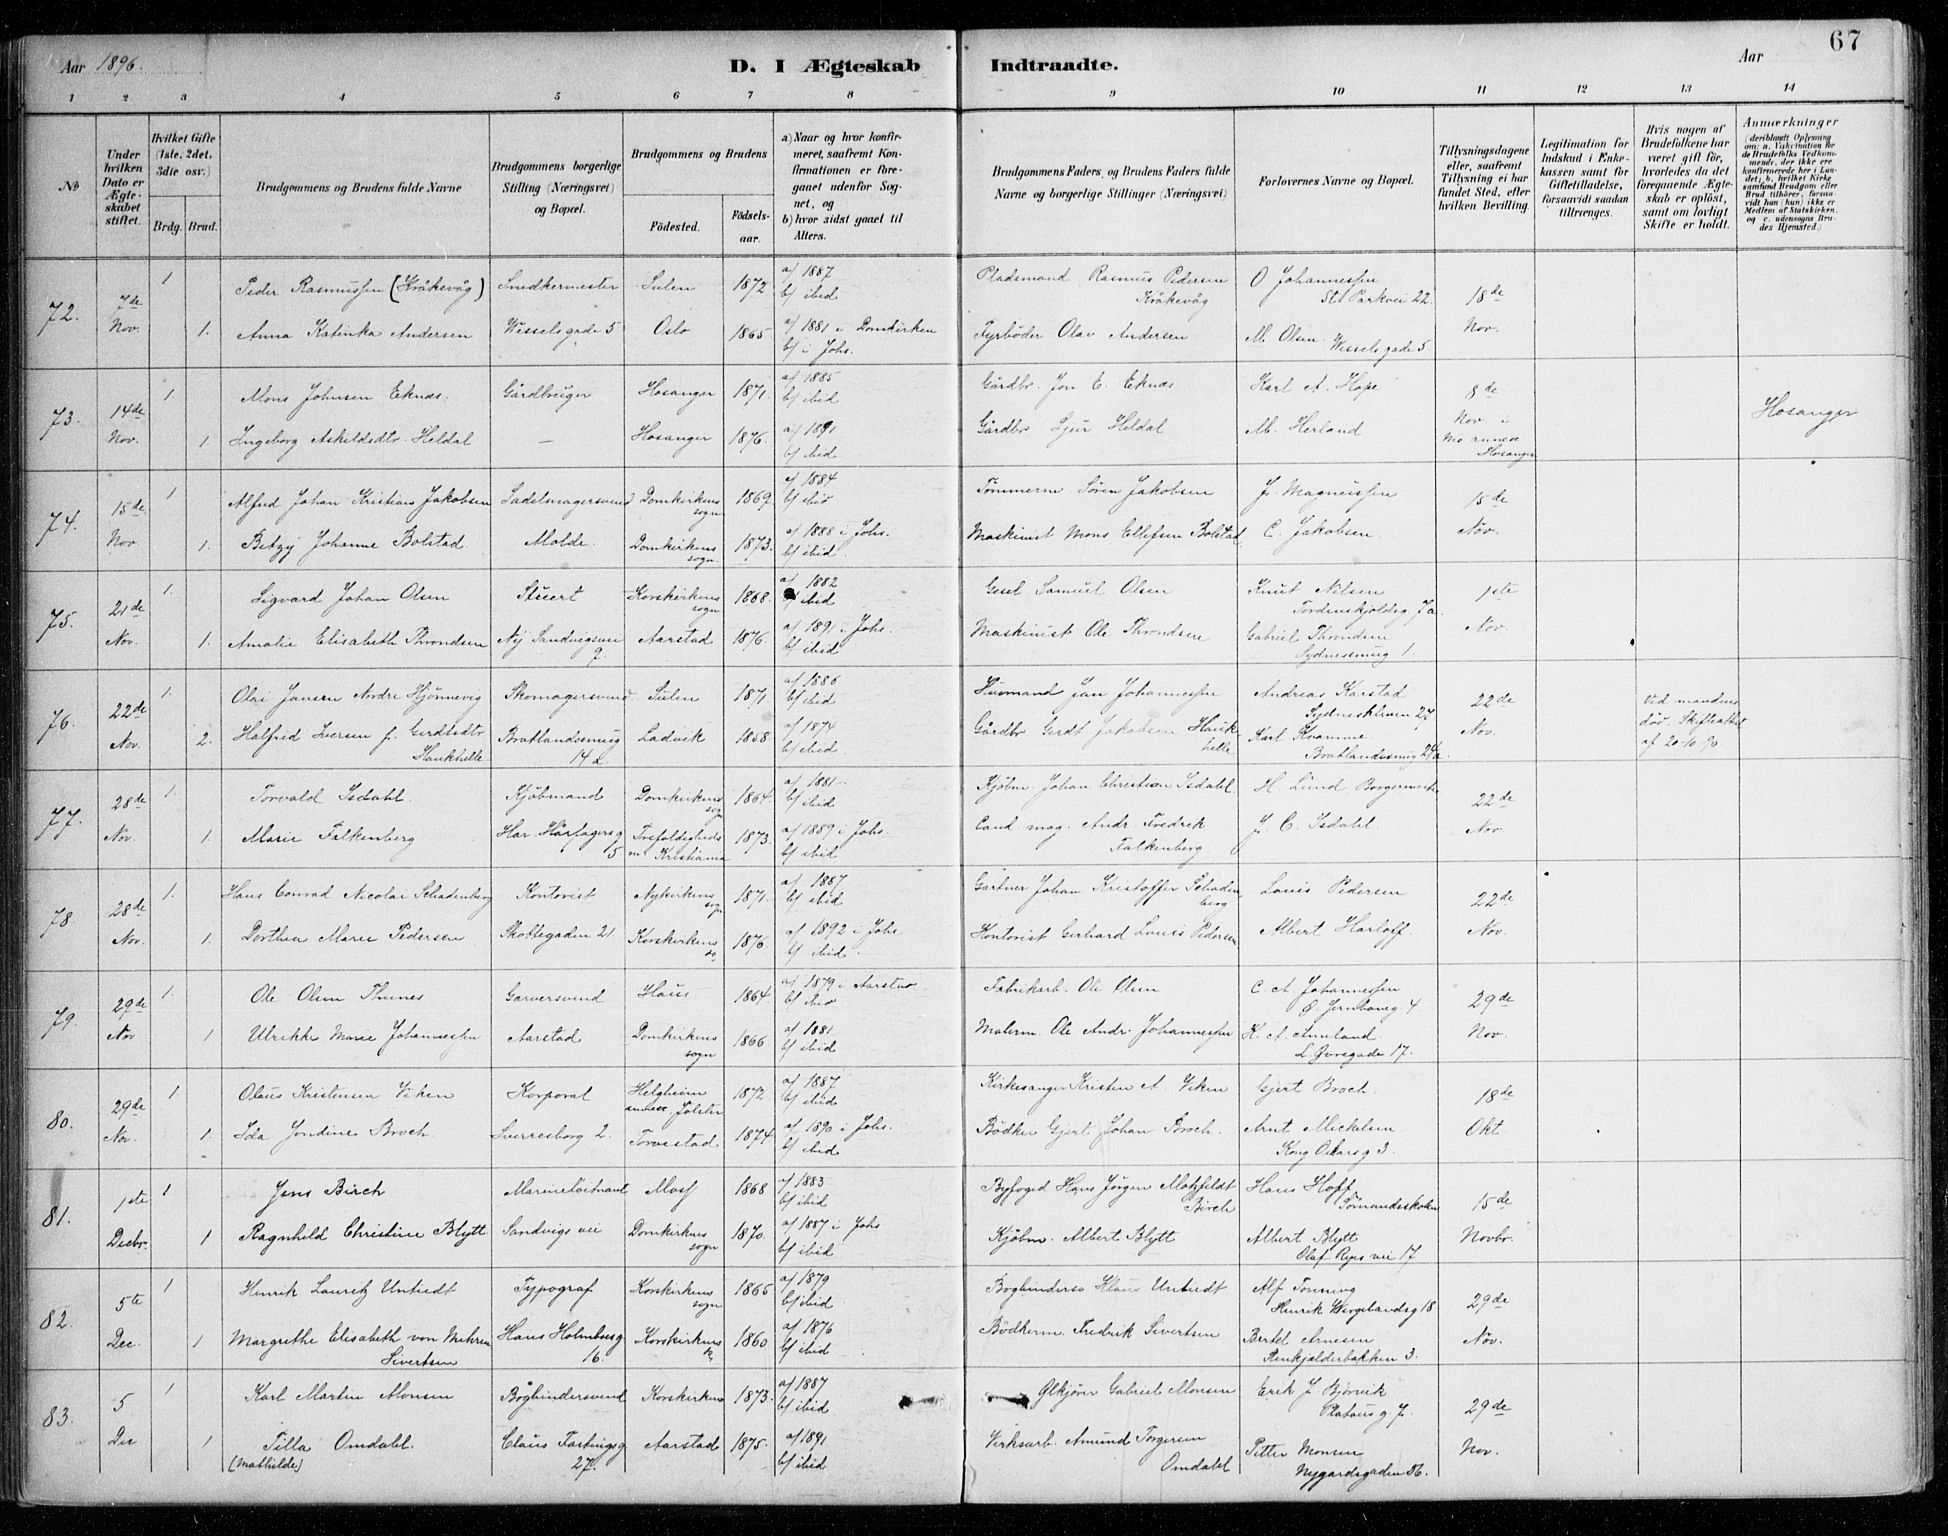 Aar 1896.
D. I Ægteskab Indtraadte.
Aar
67
1 2 3 4 5 6 7 8 9 10 11 12 13 14
No
Under hvilken Dato er Ægteskabet stiftet.
Hvilket Gifte (1ste, 2det, 3die osv.)
Brdg. Brud.
Brudgommens og Brudens fulde Navne
Brudgommens borgerlige Stilling (Næringsvei) og Bopæl.
Brudgommens og Brudens
Fødested.
Fødsels-aar.
a) Naar og hvor konfirmeret, saafremt Konfirmationen er foregaaet udenfor Sognet, og
b) hvor sidst gaaet til Alters.
Brudgommens Faders, og Brudens Faders fulde Navne og borgerlige Stillinger (Næringsvei)
Forlovernes Navne og Bopæl.
Tillysningsdagene eller, saafremt Tillysning ei har fundet Sted, efter hvilken Bevilling.
Legitimation for Indskud i Enkekassen samt for Giftetilladelse, forsaavidt saadan tiltrænges.
Hvis nogen af Brudefolkene har været gift før, hvorledes da det foregaaende Ægteskab er opløst, samt om lovligt Skifte er holdt.
Anmærkninger (deriblandt Oplysning om: a. Vakcination for de Brudefolks Vedkommende, der ikke ere konfirmerede her i Landet; b. hvilket Kirkesamfund Brudgom eller Brud tilhører, forsaavidt han (hun) ikke er Medlem af Statskirken, og c. udensogns Brudes Hjemsted.)
72. 7de Nov.
1 Peder Rasmussen (Kråkevåg) Snedkermester Sulen 1872 a/ 1887 b/ ibid Pladsmand Rasmus Pedersen Kråkevåg O Johannessen St. Parkvei 22. 18de Nov.
1. Anna Katinka Andersen Wesselsgade 5 Oslo 1865 a/ 1881 i Domkirken b/ i Johs. Fyrbøder Olav Andersen M. Olsen Wesselsgade 5
73. 14de Nov.
1 Mons Johnsen Eknes. Gårdbruger Hosanger 1871. a/ 1885 b/ ibid Gårdbr. Jon E. Eknes Karl A. Hope 8de Nov. i Mo annex Hosanger Hosanger
1 Ingeborg Askildsdtr Heldal — Hosanger 1876. a/ 1891 b/ ibid Gårdbr Sjur Heldal M. Herland
74. 15de Nov
1 Alfred Johan Kristian Jakobsen Sadelmagersvend Domkirkens sogn 1869. a/ 1884 b/ ibid Tømmerm Søren Jakobsen J. Magnussen 15de Nov.
1. Betzy Johanne Bolstad Molde. Domkirkens sogn. 1873. a/ 1888 i Johs. b/ ibid Maskinist Mons Ellefsen Bolstad C. Jakobsen
75. 21de Nov.
1. Sigvard Johan Olsen Stuert Korskirkens sogn 1868. a/ 1882 b/ ibid Gesel Samuel Olsen Knut Nilsen Tordenskjoldsg. 7a. 1ste Nov.
1. Amalie Elisabeth Throndsen Ny Sandvigsvei 9. Aarstad 1876. a/ 1891 i Johs. b/ ibid Maskinist Ole Throndsen Gabriel Throndsen Sydnessmug 1.
76. 22de Nov.
1. Olai Jansen Nordre Hjønnevåg Skomagersvend Sulen 1871. a/ 1886 b/ ibid Husmand Jan Johannessen Andreas Karstad Sydneskleven 27 22de Nov. Ved mandens død. Skifteattest af 20-10-90
2. Halfrid Iversen f. Gerdtsdtr Haukhelle. Bratlandssmug 14a Ladvik 1858 a/ 1874 b/ ibid. Gårdbr Gerdt Jakobsen Haukhelle Karl Kvamme Bratlandssmug 24a.
77. 28de Nov.
1. Torvald Isdahl. Kjøbmand Domkirkens sogn 1864. a/ 1881. b/ ibid Kjøbm. Johan Christian Isdahl H. Lund Borgermester 22de Nov.
1. Marie Falkenberg Har. Hårfagersg 15 Trefoldigheds m. Kristiania 1873. a/ 1889 i Johs b/ ibid Cand mag. Andr. Fredrik Falkenberg J. C. Isdahl
78. 28de Nov.
1. Hans Conrad Nicolai Schadenberg Kontorist Nykirkens sogn 1871. a/ 1887 b/ ibid Gartner Johan Kristoffer Schadenberg Louis Pedersen 22de Nov.
1. Dorthea Marie Pedersen Skottegaden 21 Korskirkens do 1876. a/ 1892 i Johs b/ ibid. Kontorist Gerhard Louis Pedersen Albert Harloff.
79. 29de Nov
1. Ole Olsen Thunes Garversvend Haus 1864. a/ 1879 i Aarstad b/ ibid Fabrikarb. Ole Olsen C. A. Johannessen Ø. Jernbaneg 4 29de Nov.
1 Ulrikke Marie Johannessen Aarstad Domkirkens sogn 1866. a/ 1881 b/ ibid Malerm. Ole Andr. Johannessen K. A. Ameland. L. Øvregade 17.
80. 29de Nov.
1 Olaus Kristensen Viken Korporal Helgheim annex Jølster 1872 a/ 1887 b/ ibid Kirkesanger Kristen A. Viken Gjert Broch. 18de Okt
1. Ida Jondine Broch. Sverresborg 2. Torvestad 1874 a/ 1890 i Johs. b/ ibid Bødker Gjert Johan Broch. Arnt Mickelsen Kong Oskarsg 3.
81. 1ste Decbr.
1 Jens Birch Marineløitnant Moss 1868 a/ 1883 b/ ibid Byfoged Hans Jørgen Motzfeldt Birch Hans Hoff Sømandsskolen 15de Novbr.
1 Ragnhild Christine Blytt Sandvigsvei Domkirkens sogn 1870. a/ 1887 i Johs b/ ibid Kjøbm. Albert Blytt Albert Blytt Olaf Ryes vei 17
82. 5te Dec.
1 Henrik Lauritz Untiedt Typograf Korskirkens sogn 1865 a/ 1879 b/ ibid Bogbindersv Klaus Untiedt Alf Tonning Henrik Wergelandsg 18 29de Nov.
1 Margrethe Elisabeth von Mehren Sivertsen Hans Holmboesg 16. Korskirkens 1860 a/ 1876 b/ ibid Bødkerm. Fredrik Sivertsen Bertel Arnesen Stenkjælderbakken 3.
83. 5 Dec
1 Karl Martin Monsen Bogbindersvend Korskirkens 1873. a/ 1887 b/ ibid Ølkjører Gabriel Monsen Erik J. Bjørvik Platous g 7. 29de Nov.
1 Tilla Omdahl. (Mathilde) Claus Fastingsg 27. Aarstad 1875. a/ 1891 b/ ibid Virksarb. Amund Torgersen Omdahl Petter Monsen Nygårdsgaden 56.